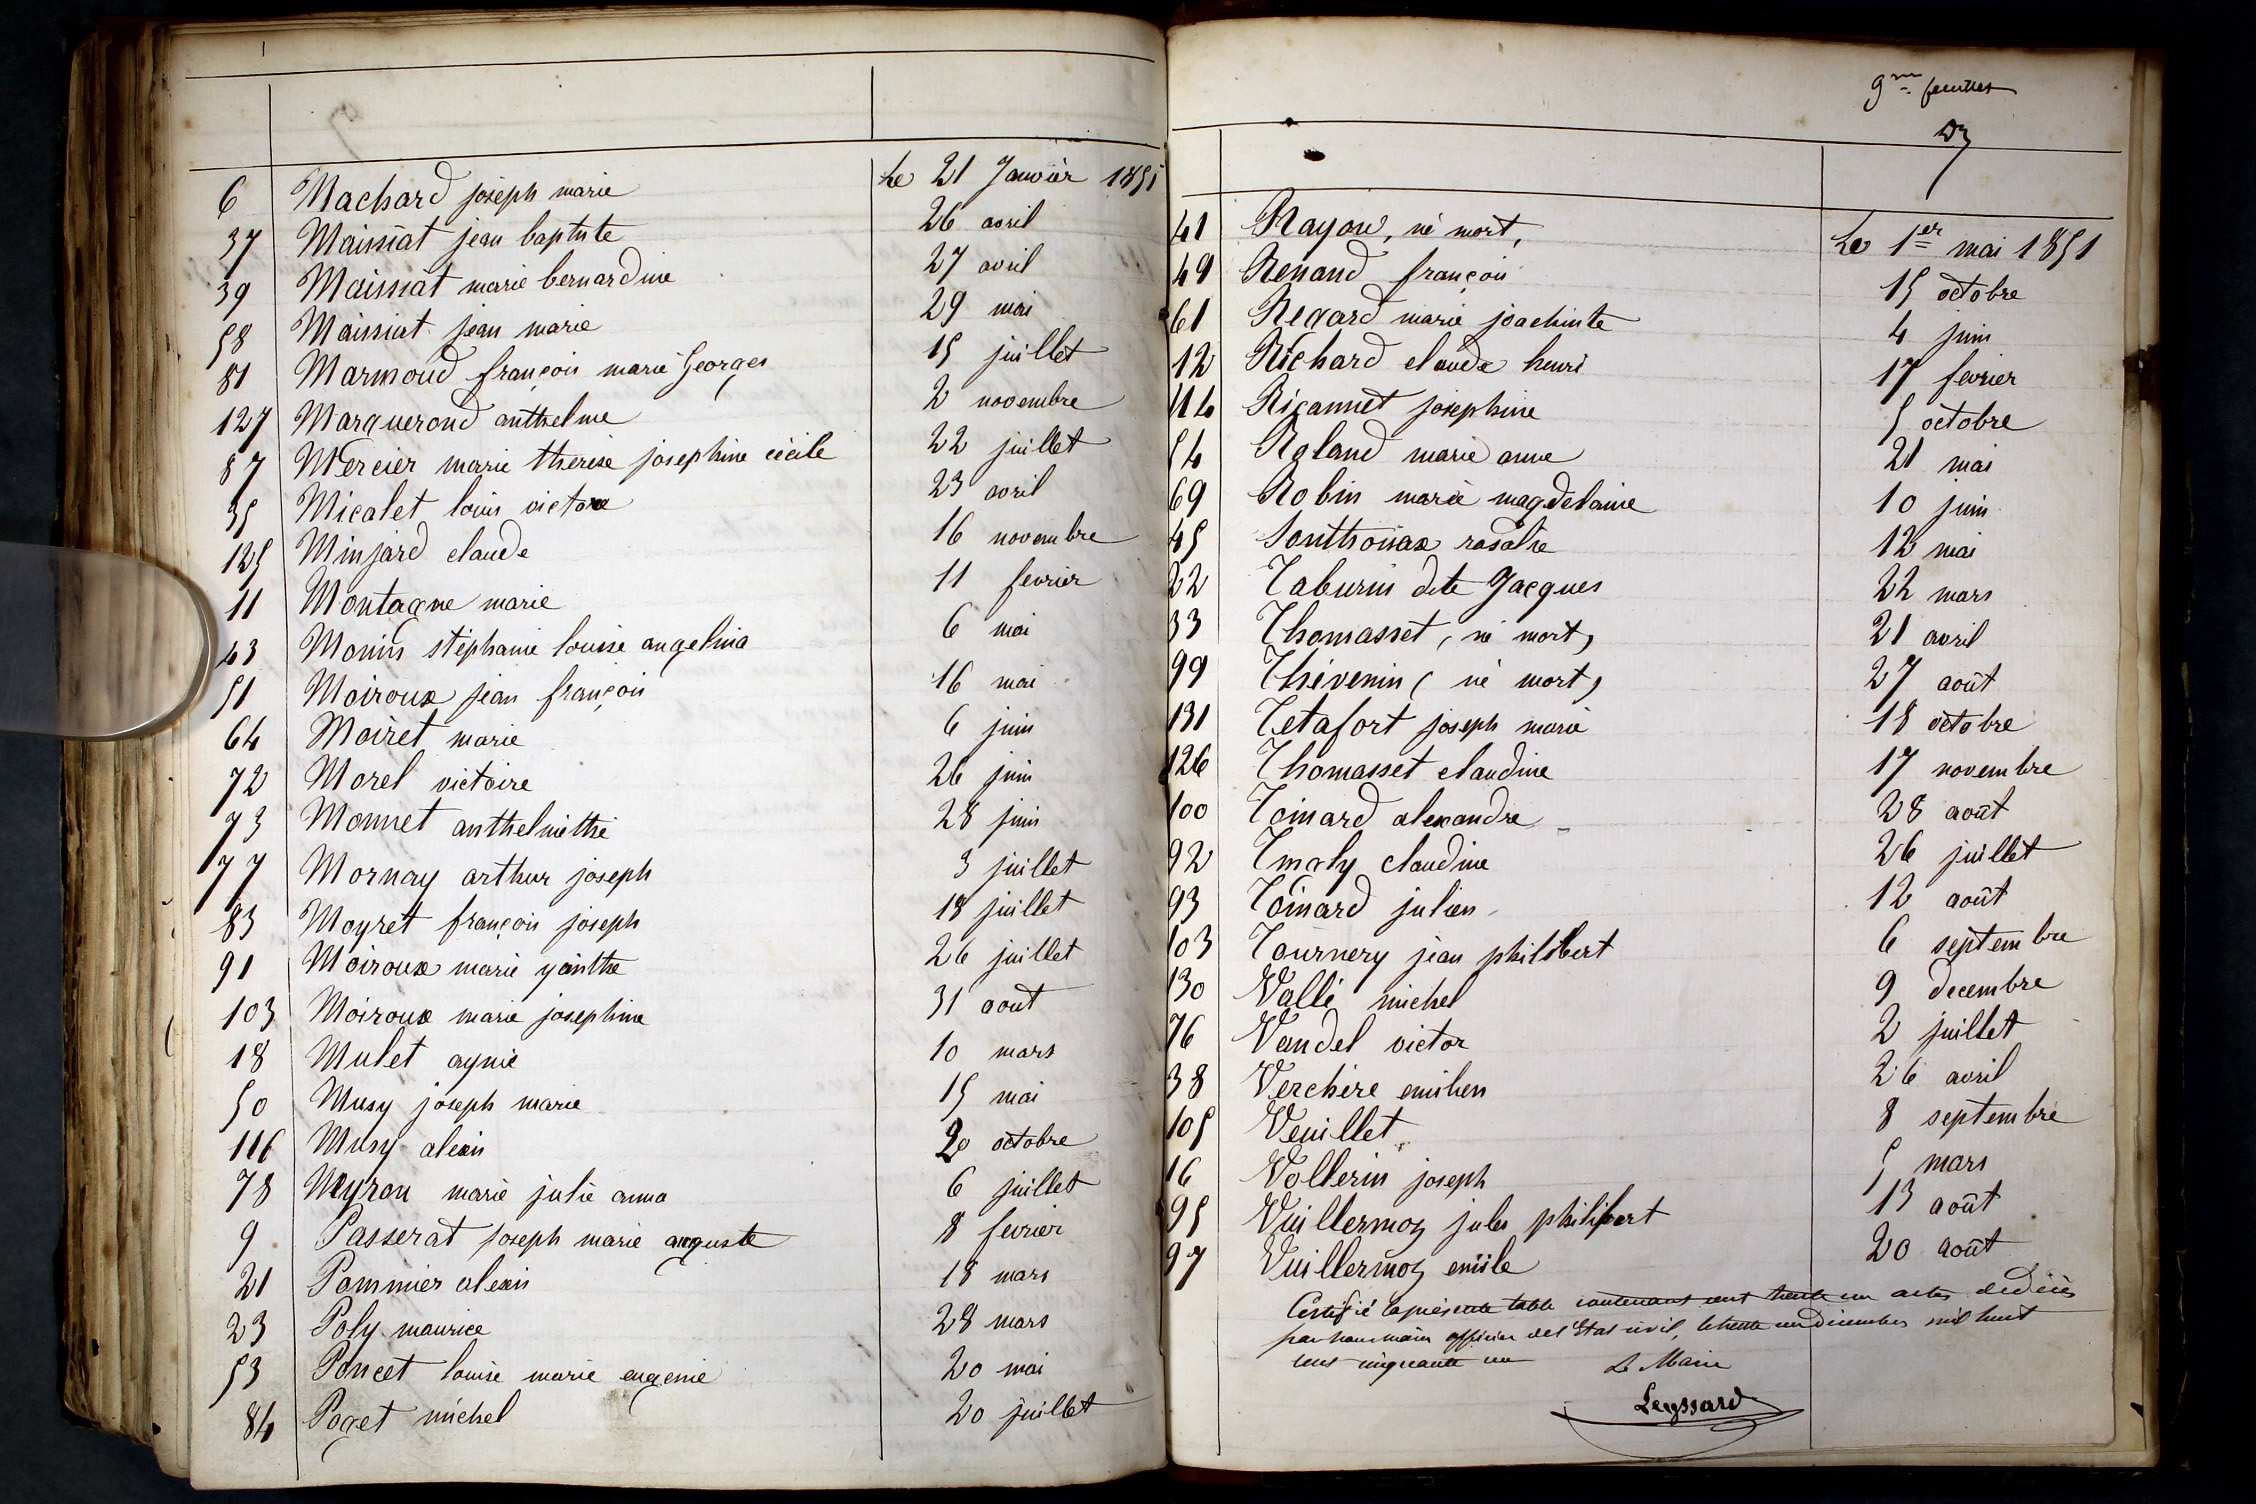 6 Machard joseph marie Le 21 Janvier 1851
37 Maissiat jean baptiste 26 avril
39 Maissiat marie bernardine 27 avril
58 Maissiat jean marie 29 mai
81 Marmoud françois marie Georges 15 juillet
127 Marquerond anthelme 2 novembre
87 Mercier marie therese josephine cécile 22 juillet
35 Micalet louis victore 23 avril
125 Minjard claude 16 novembre
11 Montagne marie 11 fevrier
43 Monin stéphanie louise angelina 6 mai
51 Moiroux jean françois 16 mai
64 Moiret marie 6 juin
72 Morel victoire 26 juin
73 Monnet anthelmette 28 juin
77 Mornay arthur joseph 3 juillet
83 Moyret françois joseph 18 juillet
91 Moiroux marie yainthe 26 juillet
103 Moiroux marie josephine 31 aout
18 Mulet aynie 10 mars
50 Musy joseph marie 15 mai
116 Musy alexis 20 octobre
78 Meyron marie julie anna 6 juillet
9 Passerat joseph marie auguste 8 fevrier
21 Pommier alexis 18 mars
23 Poly maurice 28 mars
53 Poncet louise marie eugenie 20 mai
84 Poget michel 20 juillet
9me feuillet
41 Rayou, né mort, Le 1er mai 1851
49 Renand françois 15 octobre
61 Regard marie joachinte 4 juin
12 Richard claude henri 17 fevrier
114 Rigannet josephine 5 octobre
54 Roland marie anne 21 mai
69 Robin marie magdelaine 10 juin
45 Sonthonax rosalie 12 mai
22 Taburin dite Jacques 22 mars
33 Thomasset, né mort, 21 avril
99 Thévenin, né mort, 27 août
131 Tetafort joseph marie 18 octobre
126 Thomasset claudine 17 novembre
100 Toinard alexandre 28 août
92 Tmoly claudine 26 juillet
93 Toinard julien 12 août
103 Tournery jean philibert 6 septembre
130 Vallé michel 9 decembre
76 Vandel victor 2 juillet
38 Verchère emilien 26 avril
105 Veuillet 8 septembre
16 Vollerin joseph 5 mars
95 Vuillermoz jules philibert 13 août
97 Vuillermoz emile 20 août
Certifié la présente table contenant cent trente un actes de décès
par nous maire officier de l'Etat civil, le trente un décembre mil huit
cent cinquante un Le Maire
Leyssard